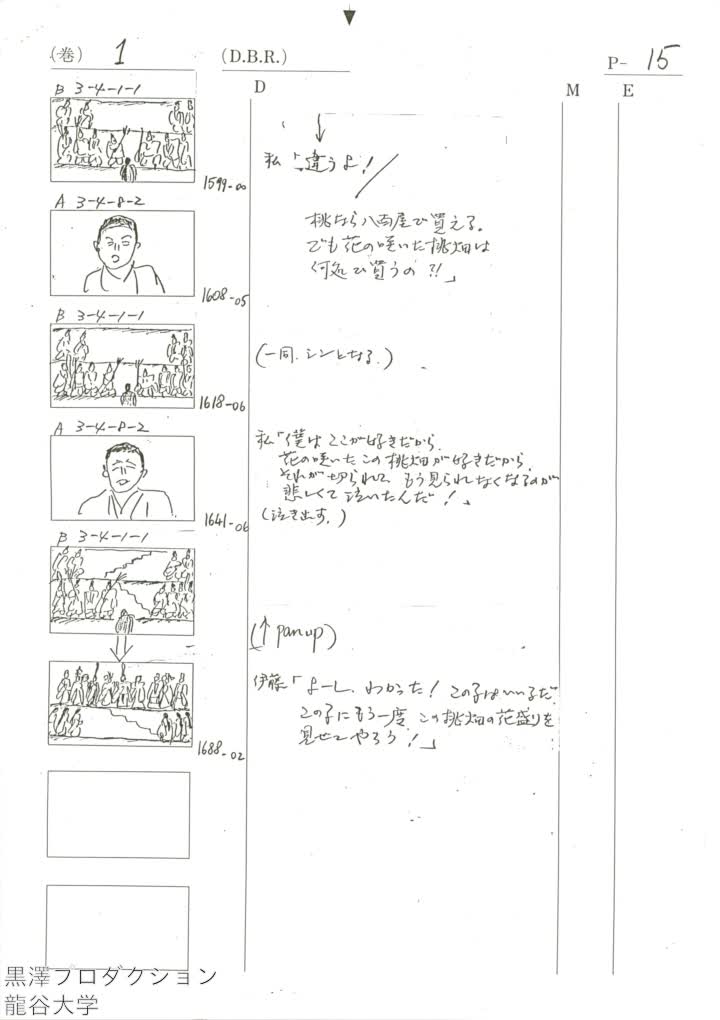 (巻) 1
(D.B.R.)
P- 15
D
M
E
B 3-4-1-1
1599-00
私「違うよ!
A 3-4-8-2
桃なら八百屋で買える。
でも花の咲いた桃畑は
何処で買うの?!」
1608-05
B 3-4-1-1
(一同、シンとなる。)
1618-06
A 3-4-8-2
私「僕はここが好きだから、
花の咲いたこの桃畑が好きだから、
それが切られて、もう見られなくなるのが
悲しくて泣いたんだ!」
(泣き出す。)
1641-06
B 3-4-1-1
(↑ pan up)
伊藤「よーし、わかった! この子はいい子だ
この子にもう一度 この桃畑の花盛りを
見せてやろう!」
1688-02
黒澤プロダクション
龍谷大学